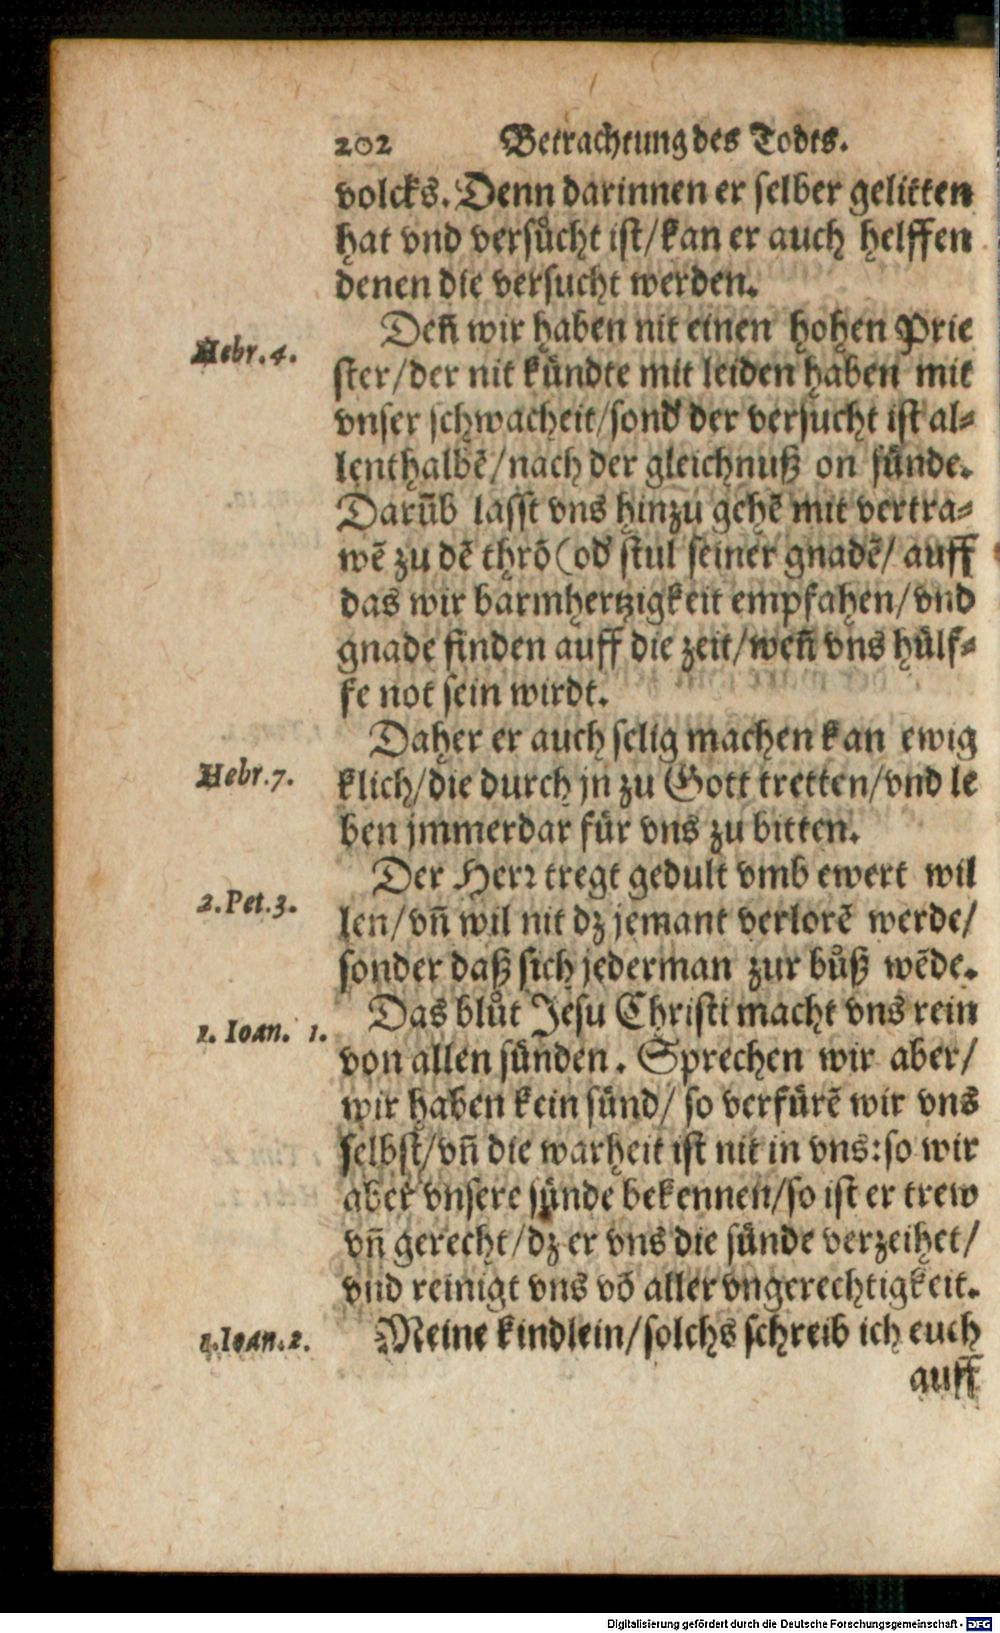 202 Betrachtung des Todts.
volcks. Denn darinnen er selber gelitten
hat vnd versůcht ist/kan er auch helffen
denen die versucht werden.
Hebr. 4.
Deñ wir haben nit einen hohen Prie
ster/der nit kündte mit leiden haben mit
vnser schwacheit/sond' der versucht ist al⸗
lenthalbẽ/nach der gleichnuß on sünde.
Darũb lasst vns hinzu gehẽ mit vertra⸗
wẽ zu dẽ thrõ(od' stul seiner gnadẽ/ auff
das wir barmhertzigkeit empfahen/vnd
gnade finden auff die zeit/weñ vns hülf⸗
fe not sein wirdt.
Hebr. 7.
Daher er auch selig machen kan ewig
klich/die durch jn zu Gott tretten/vnd le
ben jmmerdar für vns zu bitten.
2. Pet. 3.
Der Herr tregt gedult vmb ewert wil
len/vñ wil nit dz jemant verlorẽ werde/
sonder daß sich jederman zur bůß wẽde.
1. Ioan. 1.
Das blůt Jesu Christi macht vns rein
von allen sünden. Sprechen wir aber/
wir haben kein sünd/ so verfürẽ wir vns
selbst/vñ die warheit ist nit in vns: so wir
aber vnsere sünde bekennen/so ist er trew
vñ gerecht/dz er vns die sünde verzeihet/
vnd reinigt vns võ aller vngerechtigkeit.
1. Ioan. 2.
Meine kindlein/solchs schreib ich euch
auff
Digitalisierung gefördert durch die Deutsche Forschungsgemeinschaft - DFG